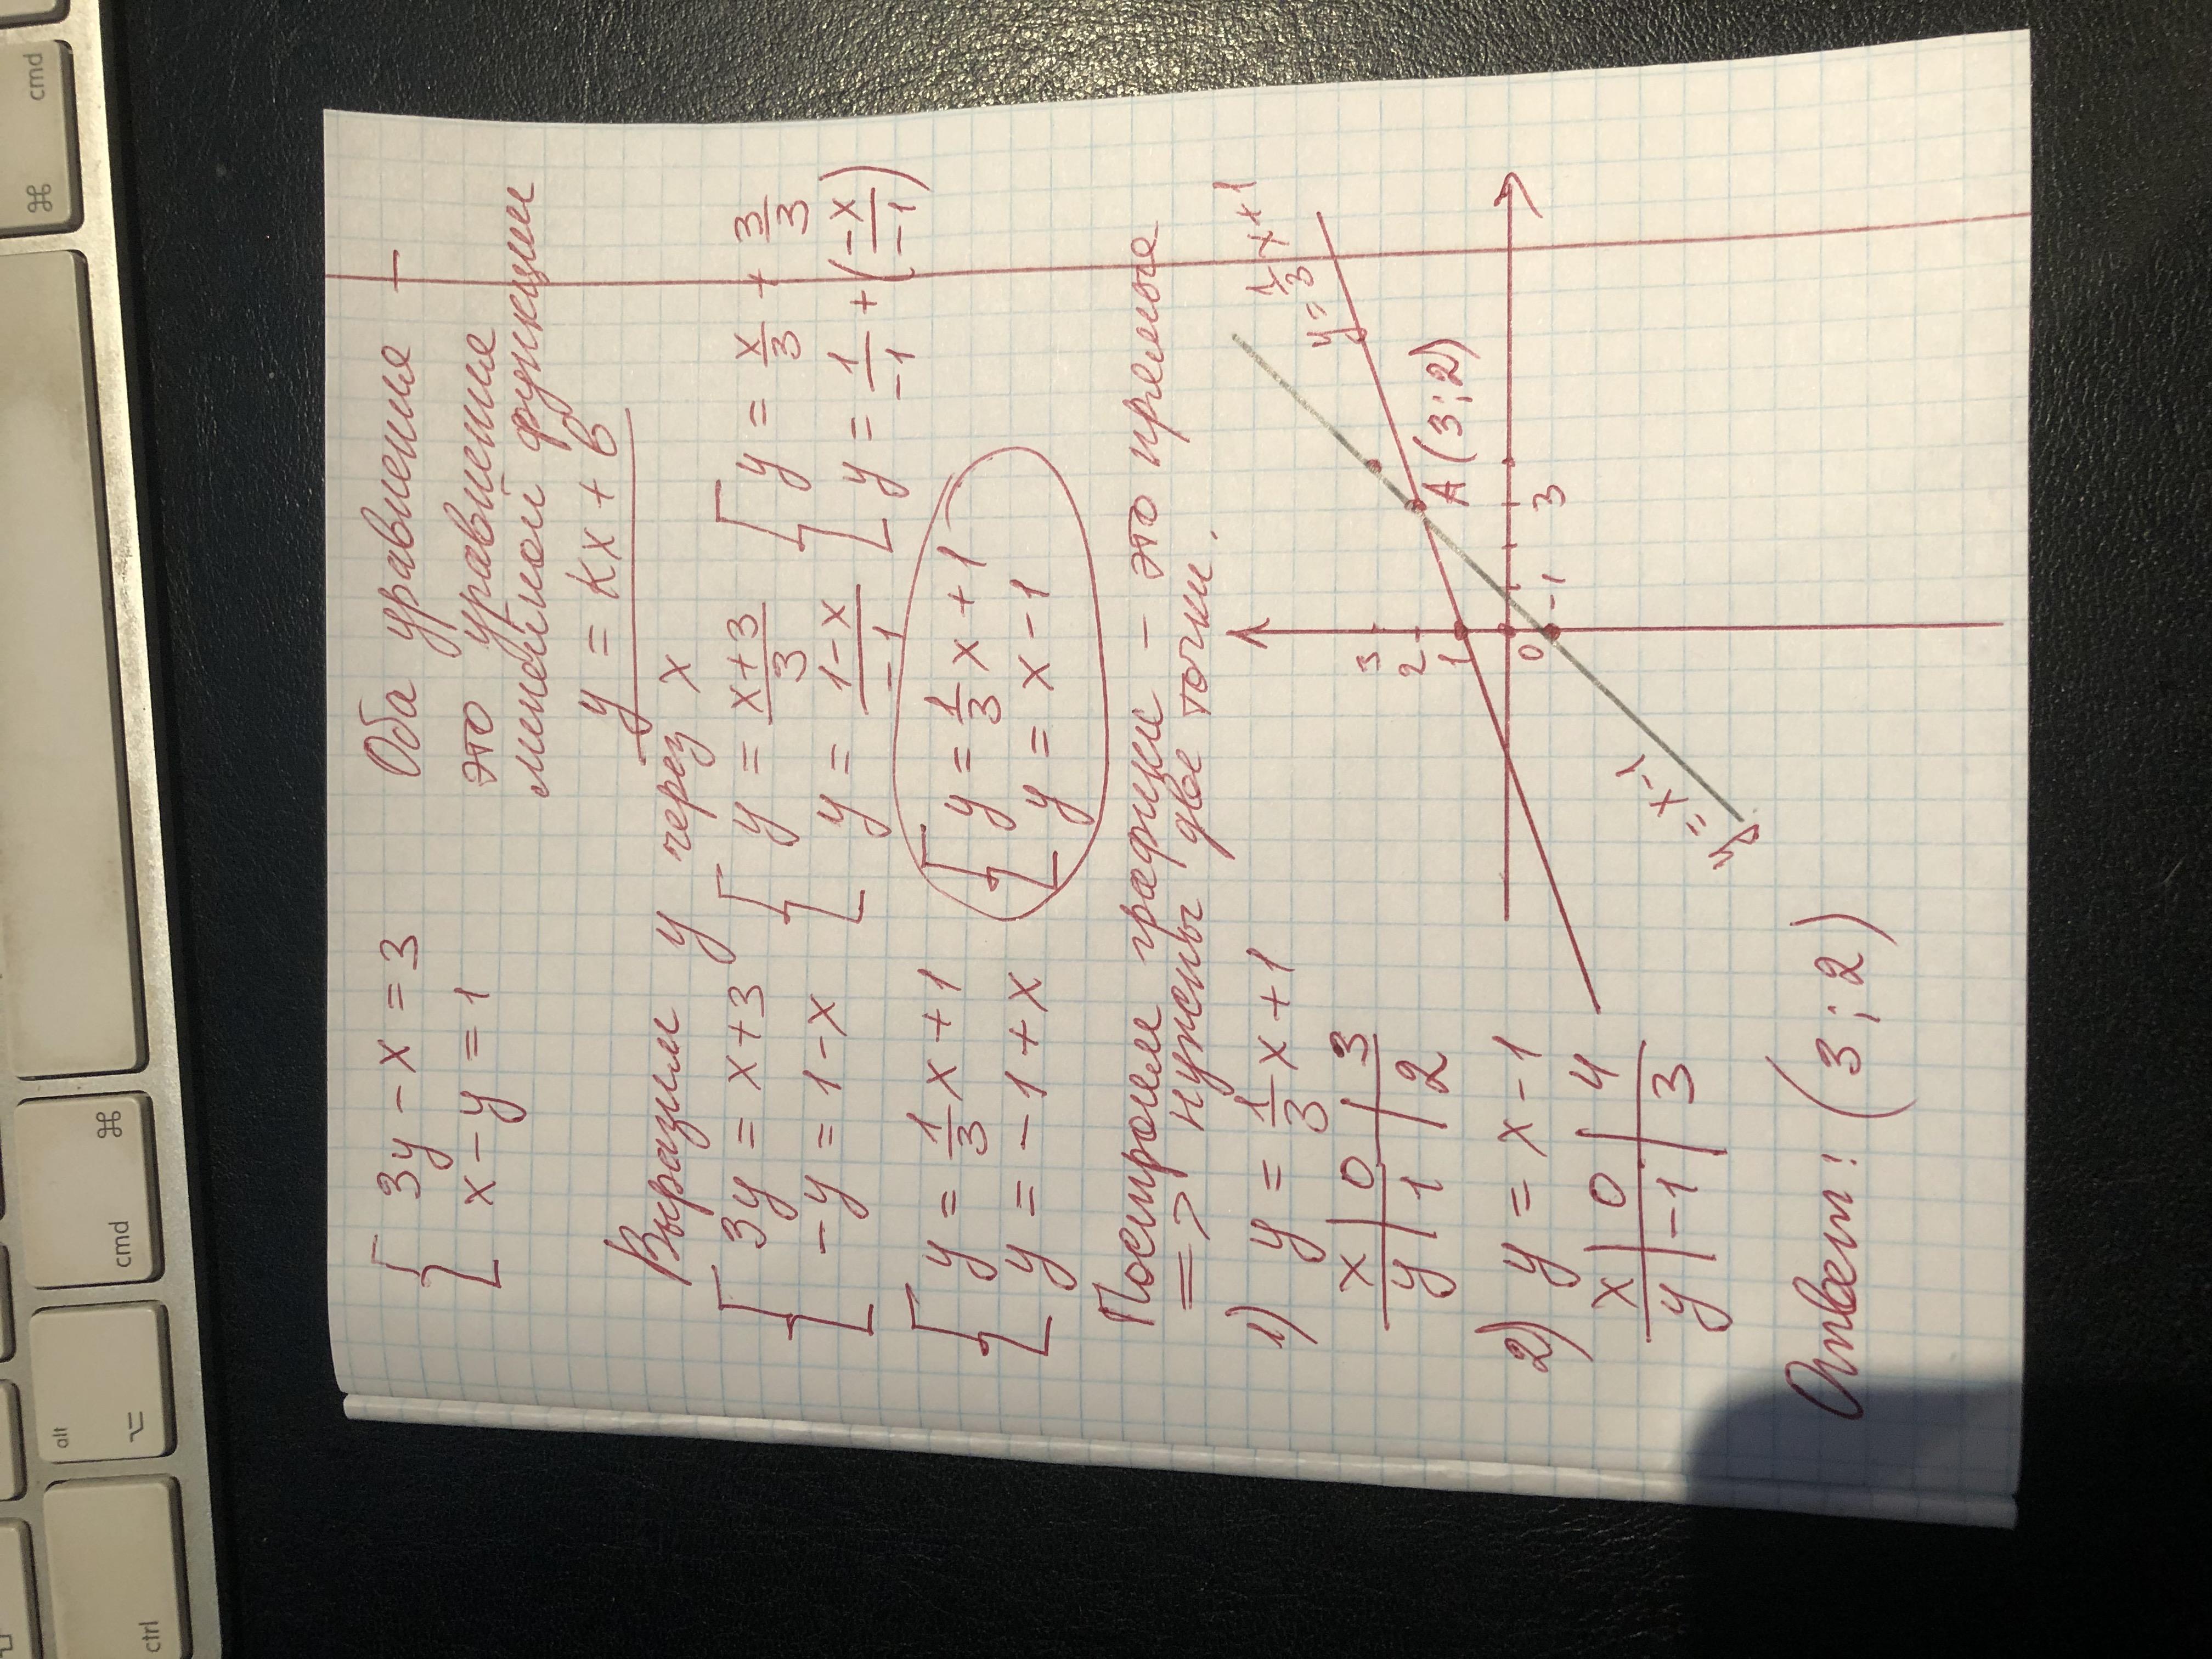 { 3y - x = 3
x - y = 1
Оба уравнения -
это уравнение
линейной функции
y = kx + b
Выразим y через x
{ 3y = x + 3
-y = 1 - x
{ y = x+3/3
y = 1-x/-1
{ y = x/3 + 3/3
y = 1/-1 + (-x/-1)
{ y = 1/3 x + 1
y = -1 + x
{ y = 1/3 x + 1
y = x - 1
Построим графики - это прямые
=> нужны две точки.
1) y = 1/3 x + 1
x | 0 | 3
y | 1 | 2
2) y = x - 1
x | 0 | 4
y | -1 | 3
y = 1/3 x + 1
A (3; 2)
3
2
1
0
-1
3
y = x - 1
Ответ: (3; 2)
cmd
⌘
⌘
cmd
alt
⌥
ctrl